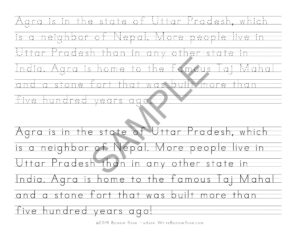 Agra is in the state of Uttar Pradesh, which
is a neighbor of Nepal. More people live in
Uttar Pradesh than in any other state in
India. Agra is home to the famous Taj Mahal
and a stone fort that was built more than
five hundred years ago!
SAMPLE
Agra is in the state of Uttar Pradesh, which
is a neighbor of Nepal. More people live in
Uttar Pradesh than in any other state in
India. Agra is home to the famous Taj Mahal
and a stone fort that was built more than
five hundred years ago!